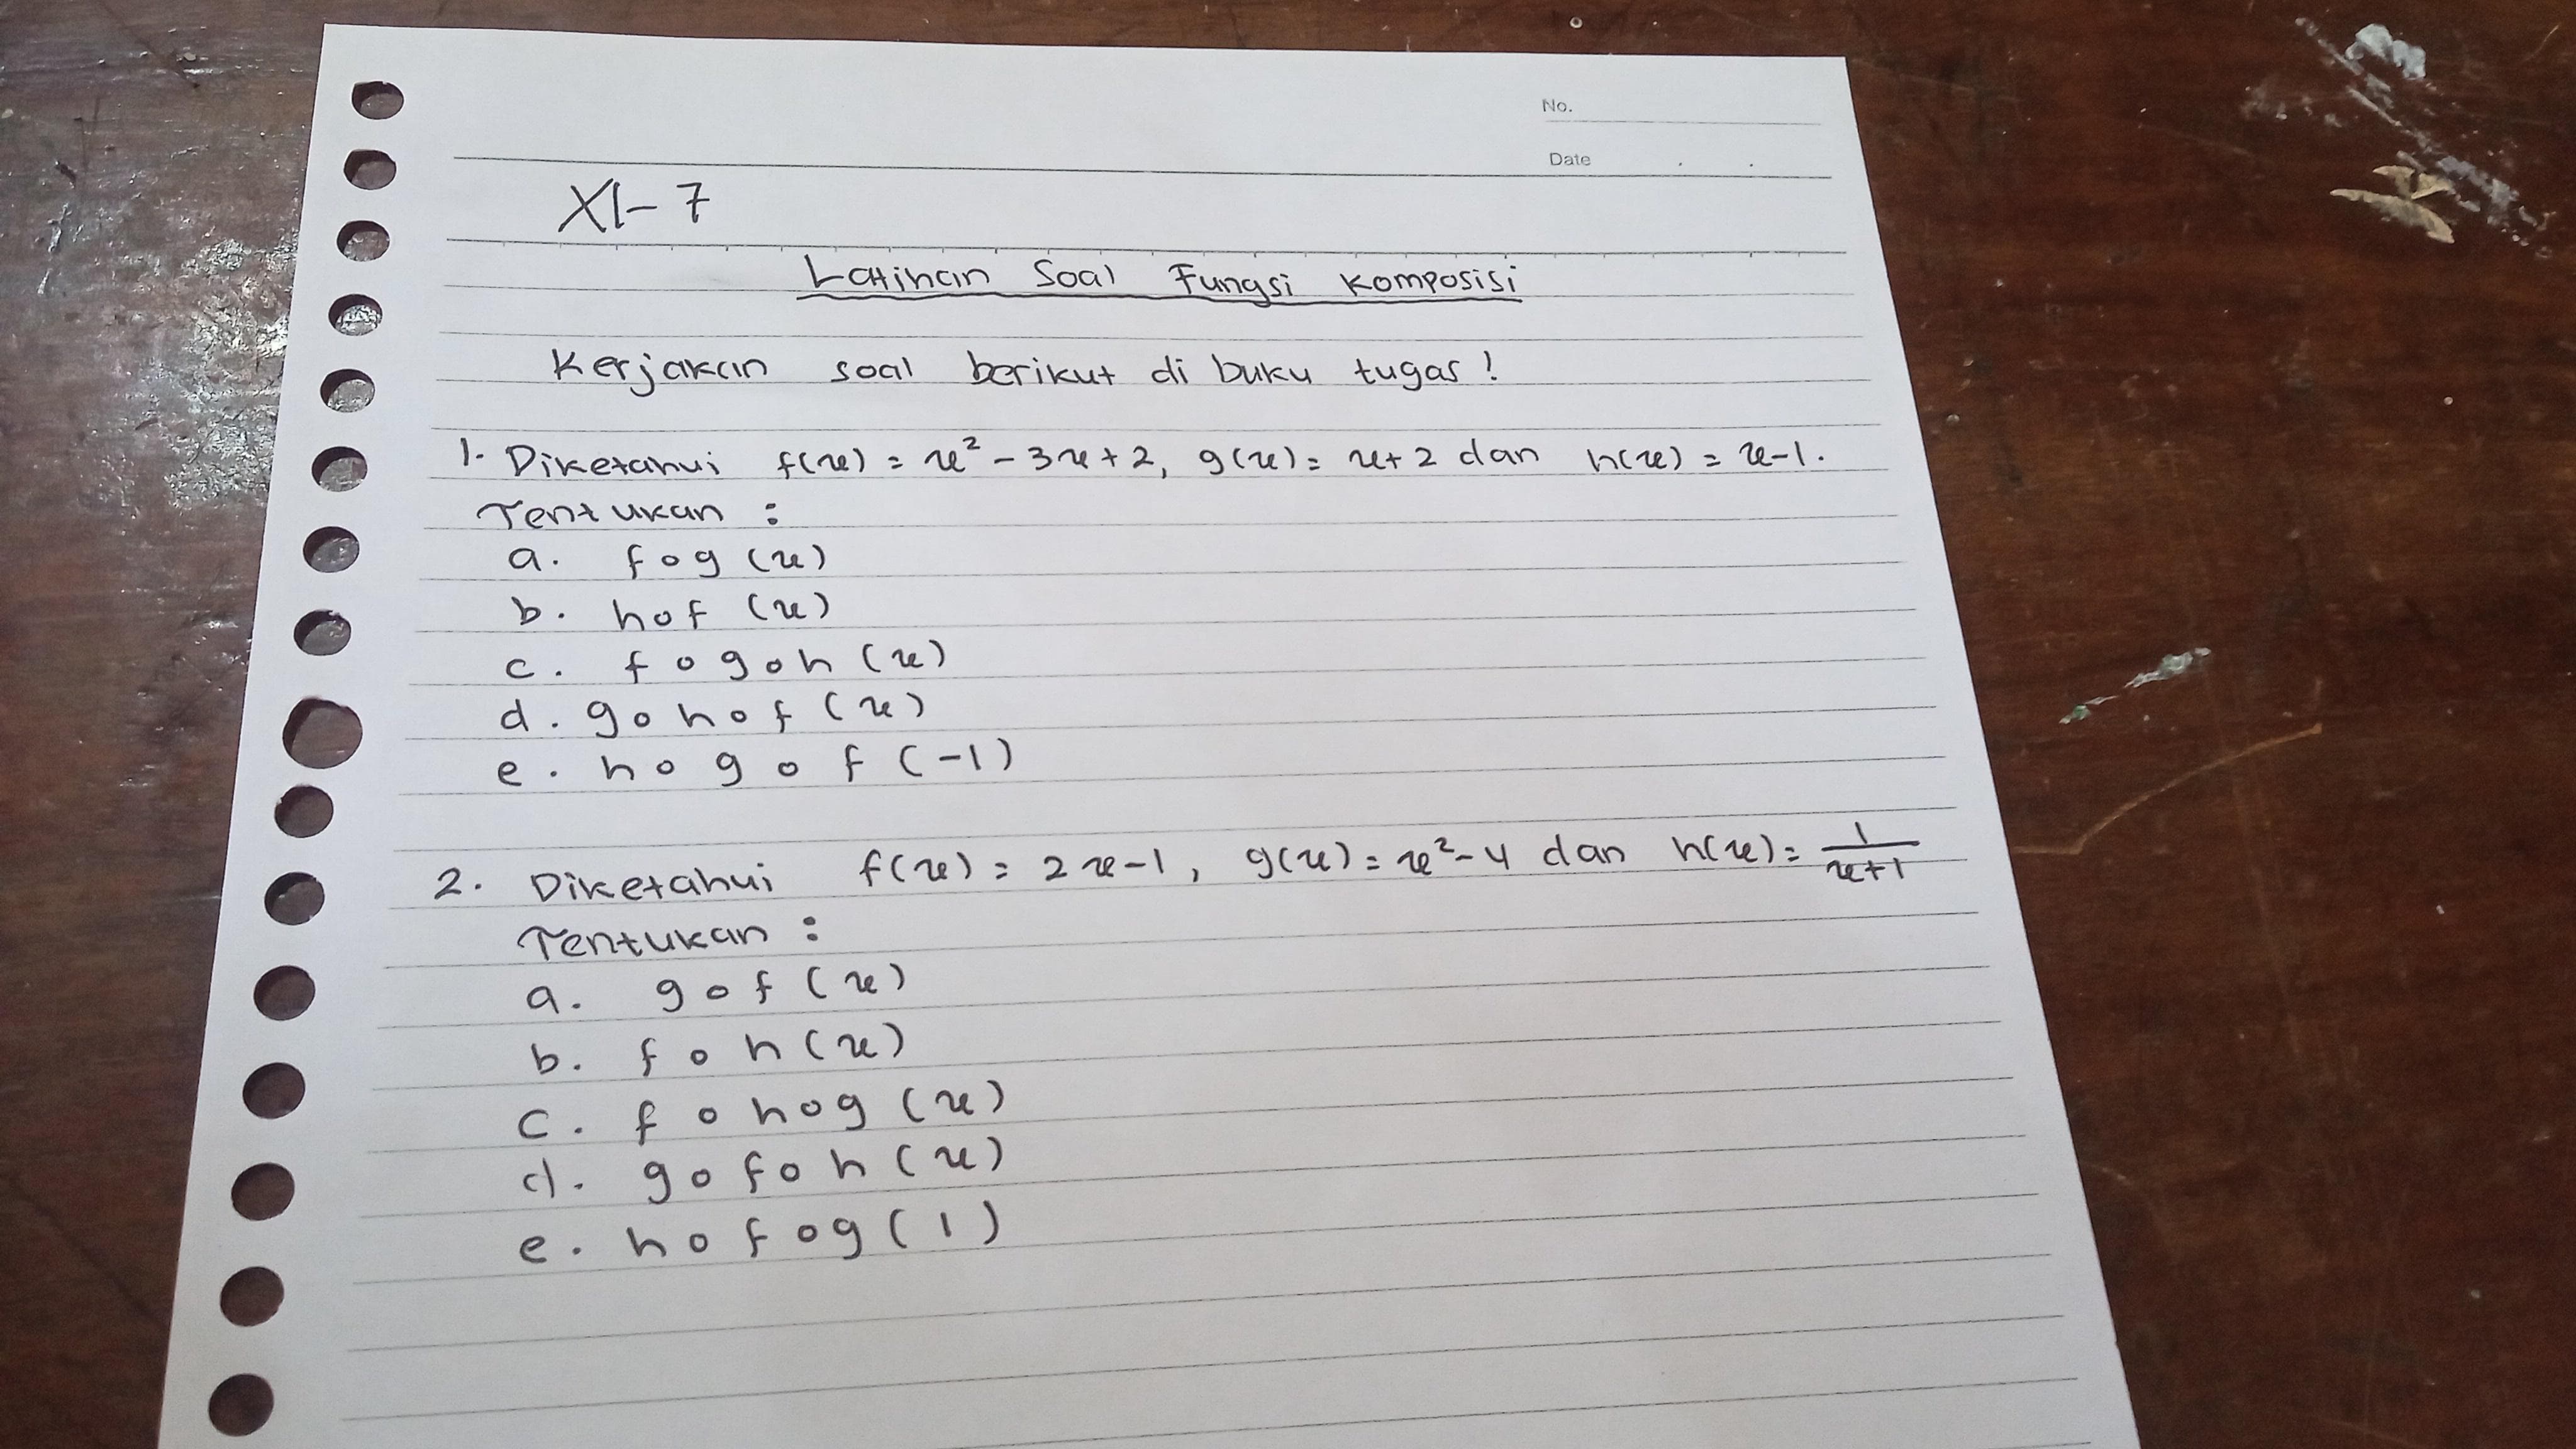 No.
Date . .
XI-7
Latihan Soal Fungsi Komposisi
Kerjakan soal berikut di buku tugas!
1. Diketahui f(x) = x² - 3x + 2, g(x) = x + 2 dan h(x) = x - 1.
Tentukan :
a. f o g (x)
b. h o f (x)
c. f o g o h (x)
d. g o h o f (x)
e. h o g o f (-1)
2. Diketahui f(x) = 2x - 1, g(x) = x² - 4 dan h(x) = 1/(x+1)
Tentukan :
a. g o f (x)
b. f o h (x)
c. f o h o g (x)
d. g o f o h (x)
e. h o f o g (1)